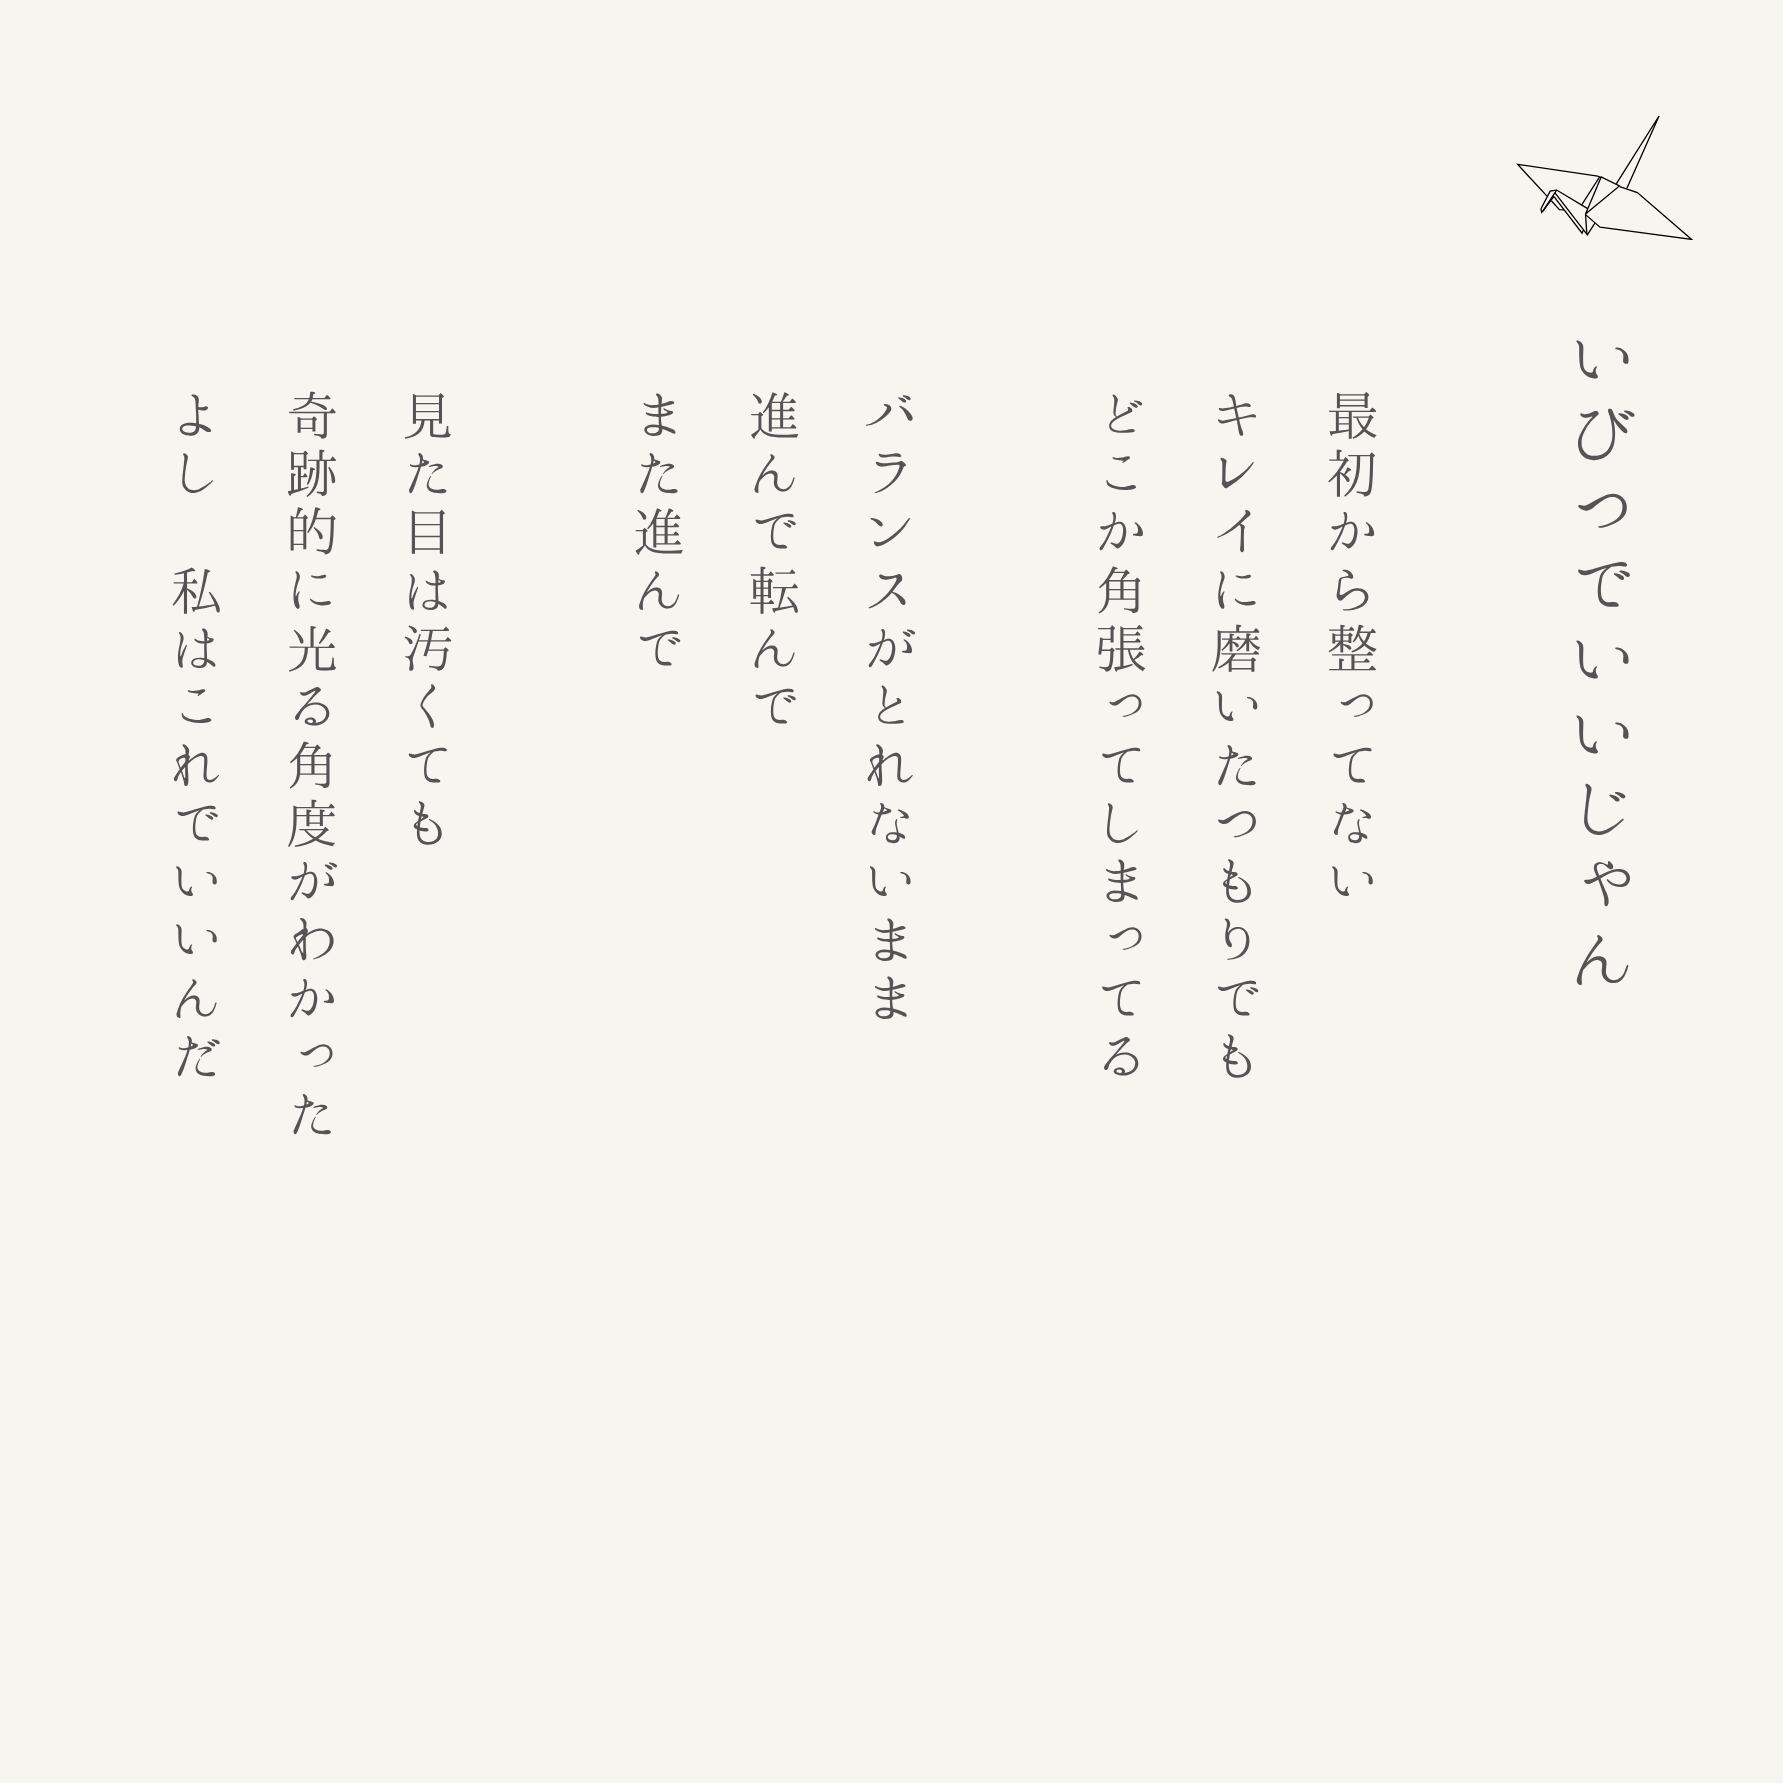 いびつでいいじゃん
最初から整ってない
キレイに磨いたつもりでも
どこか角張ってしまってる
バランスがとれないまま
進んで転んで
また進んで
見た目は汚くても
奇跡的に光る角度がわかった
よし　私はこれでいいんだ